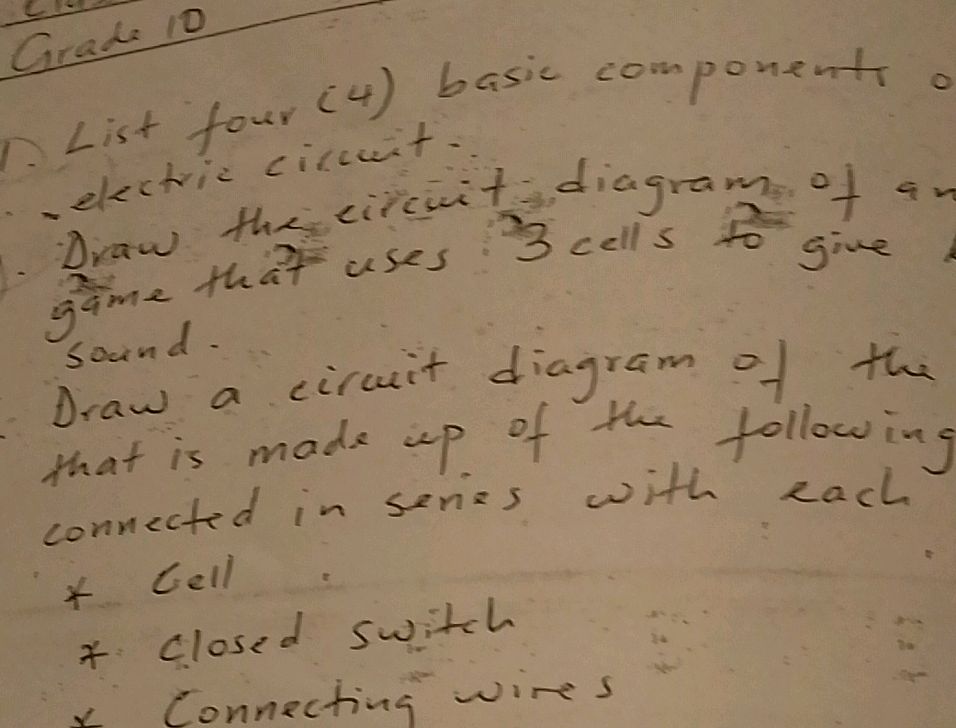 Grade 10
1. List four (4) basic components
electric circuit.
Draw the circuit diagram of an
game that uses 3 cells to give
sound.
Draw a circuit diagram of the
that is made up of the following
connected in series with each
* Cell
* Closed switch
* Connecting wires